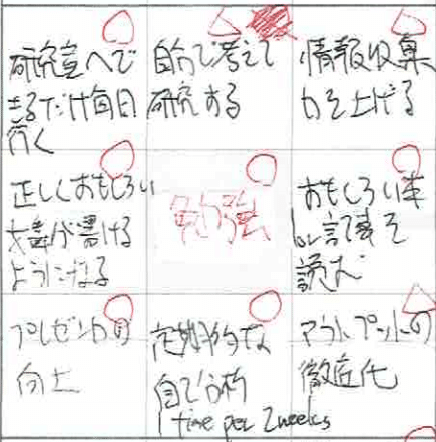 研究室へで
きるだけ毎日
行く
自分で考えて
研究する
情報収集
力を上げる
正しくおもしろい
文章が書ける
ようになる
勉強
おもしろい本
or 記事を
読む
プレゼン力の
向上
定期的な
自己分析
1 time per 2weeks
アウトプットの
徹底化